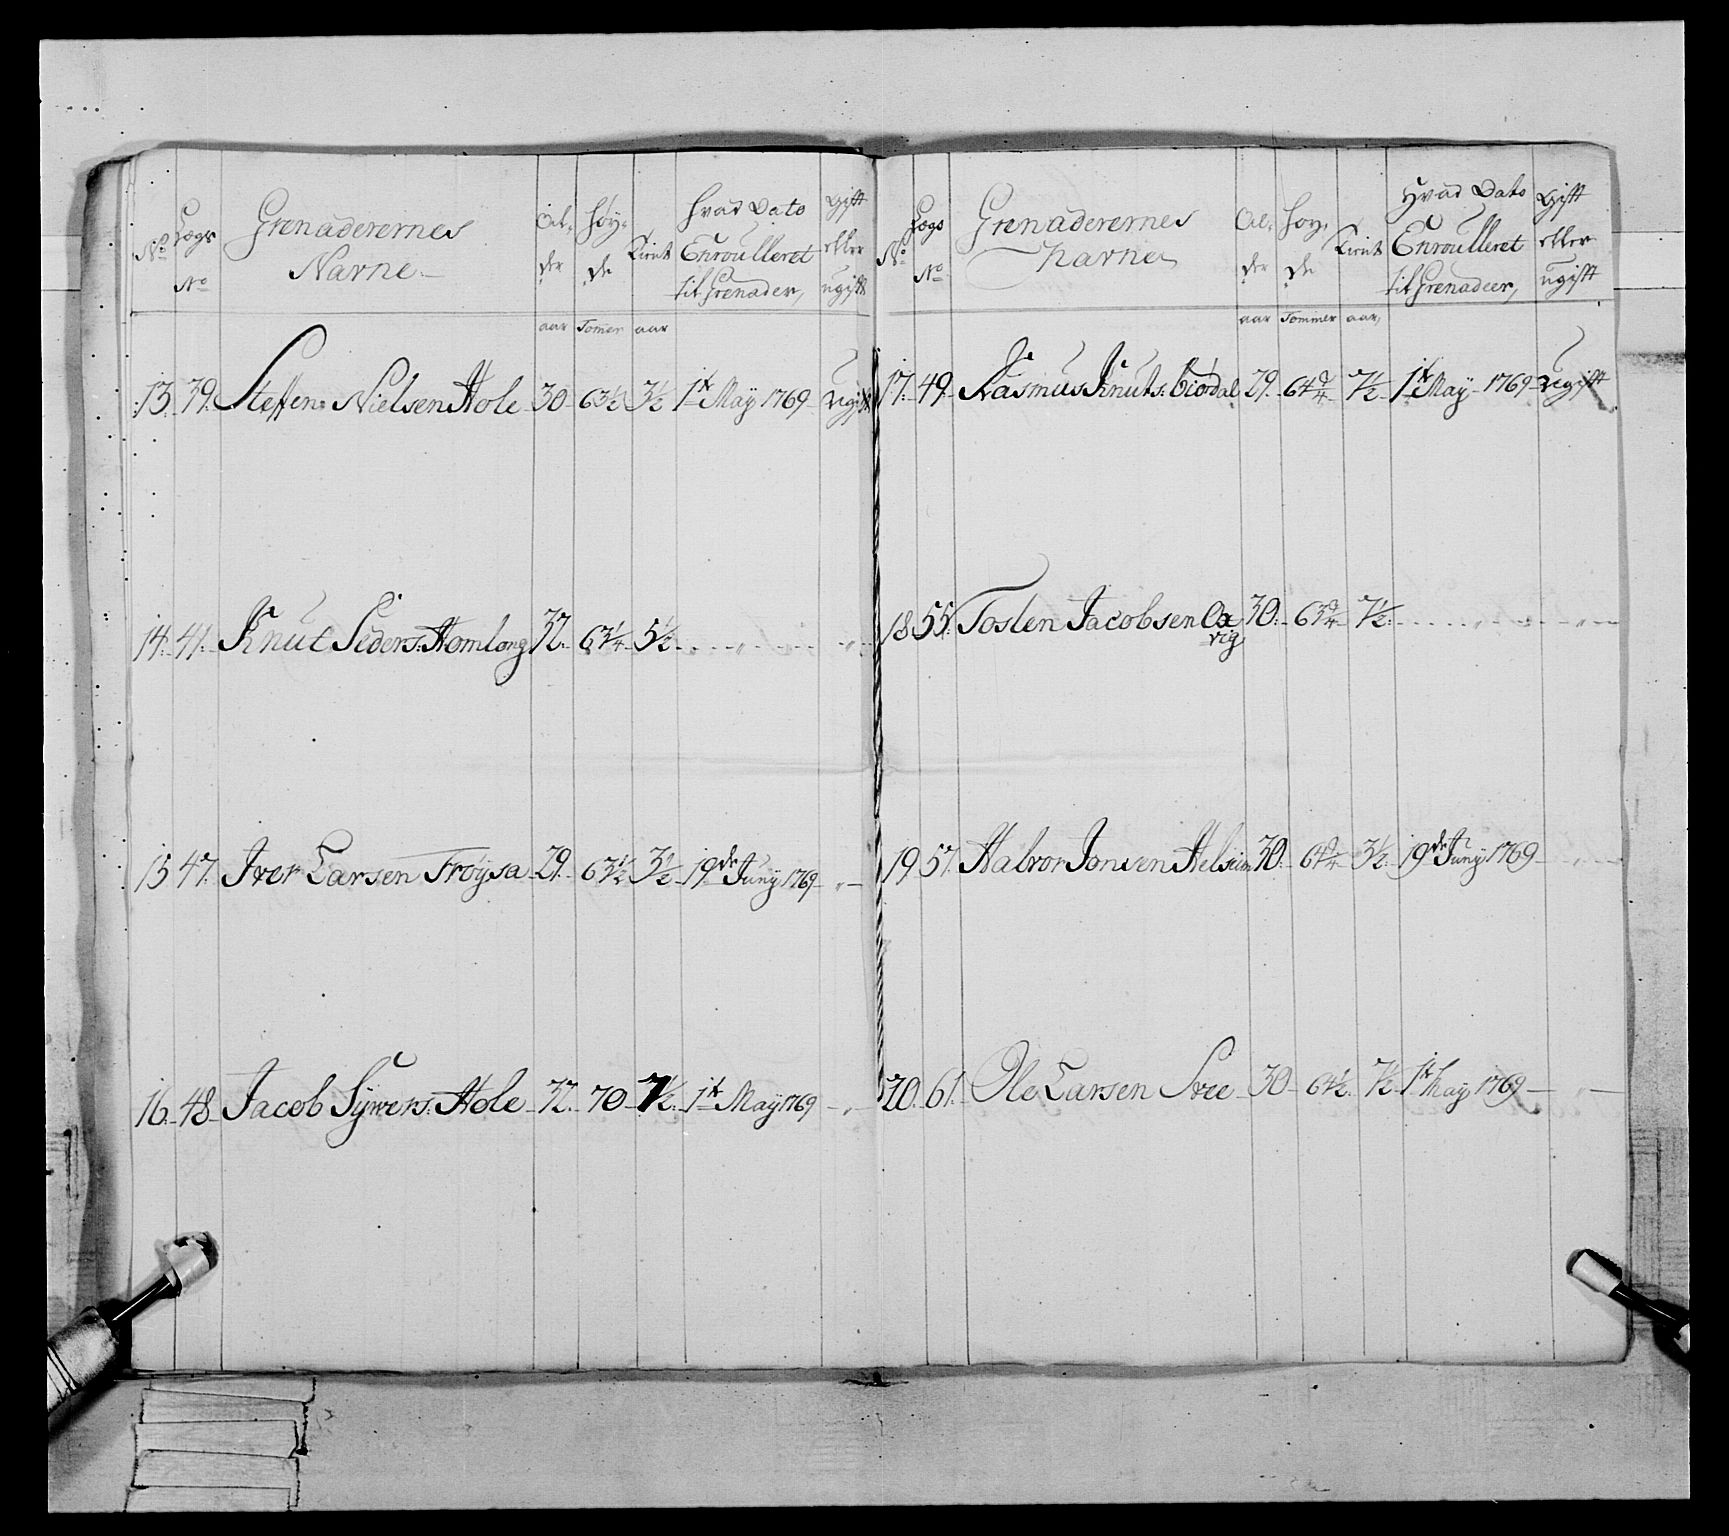 No Lægs No Grenaderernes Navne Al-der Høy-de Tient Hvad Dato Enroulleret til Grenader, Gift eller ugift
aar Tomer aar
13. 39. Steffen Nielsen Hole 30 63½ 3½ 1te May 1769 Ugift
14. 41. Knut Peders: Homlong 32. 63¼ 5½ " "
15 47. Iver Larsen Frøysa 29. 63½ 3½ 19de Juny 1769 "
16. 48. Jacob Syvers: Hole 32. 70 7½ 1te May 1769 "
No Lægs No Grenaderernes Navne Al-der Høy-de Tient Hvad Dato Enroulleret til Grenadeer, Gift eller ugift
aar Tommer aar,
17. 49. Rasmus Knuts: Giørdal 29. 64¾ 7½ 1te May 1769 Ugift
18 55. Tosten Jacobsen Ox
vig 30. 63¾ 7½ " "
19 57. Halvor Jonsen Helsem 30. 64¾ 3½ 19de Juny 1769 "
20. 61. Ole Larsen Svee 30 64½ 7½ 1te May 1769 "